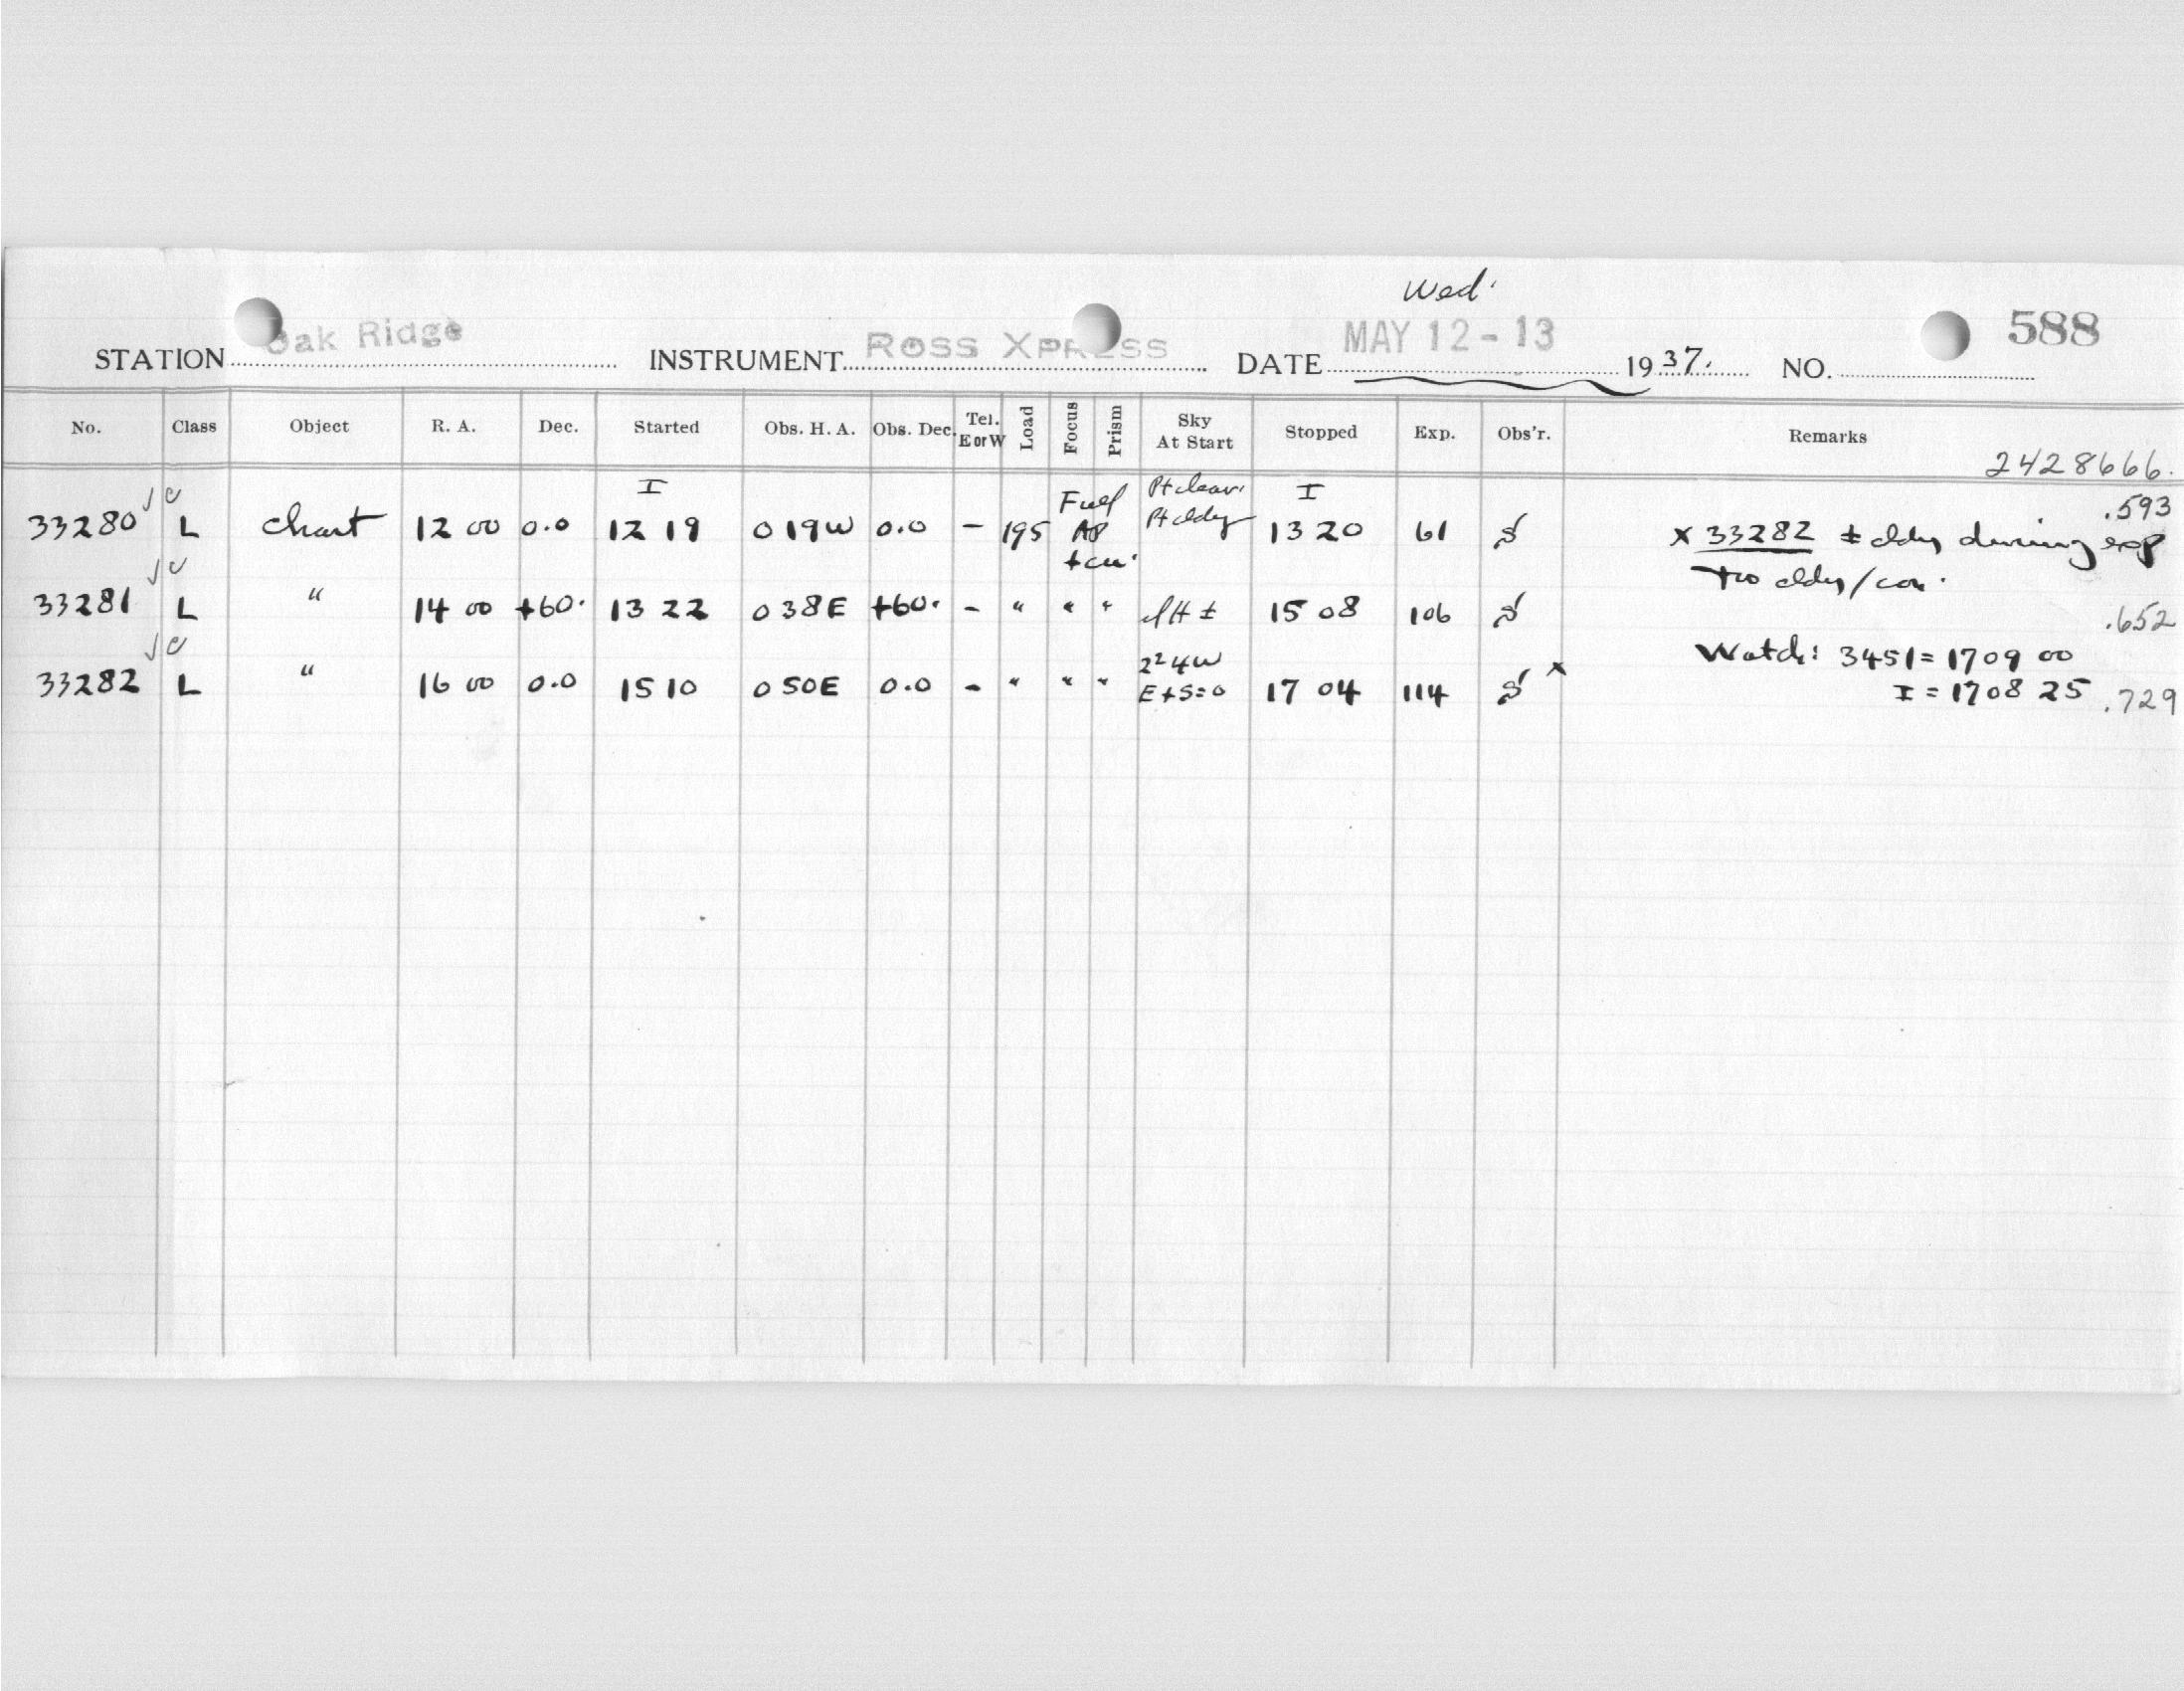 Wed.
STATION Oak Ridge INSTRUMENT Ross Xpress DATE MAY 12-13 1937. NO. 588
No. Class Object R. A. Dec. Started Obs. H. A. Obs. Dec. Tel. E or W Load Focus Prism Sky At Start Stopped Exp. Obs'r. Remarks
2428666.
I Full Pt clear. I .593
33280 L Chart 12 00 0.0 12 19 0 19W 0.0 - 195 AP Pt cldy 13 20 61 S x 33282 ± cldy during exp
two cldy/
33281 L " 14 00 +60. 13 22 0 38E +60. - " " " ± 15 08 106 S .652
2 2 4W Watch: 3451 = 1709 00
33282 L " 16 00 0.0 15 10 0 50E 0.0 - " " " E+S=0 17 04 114 S x I = 1708 25 .729